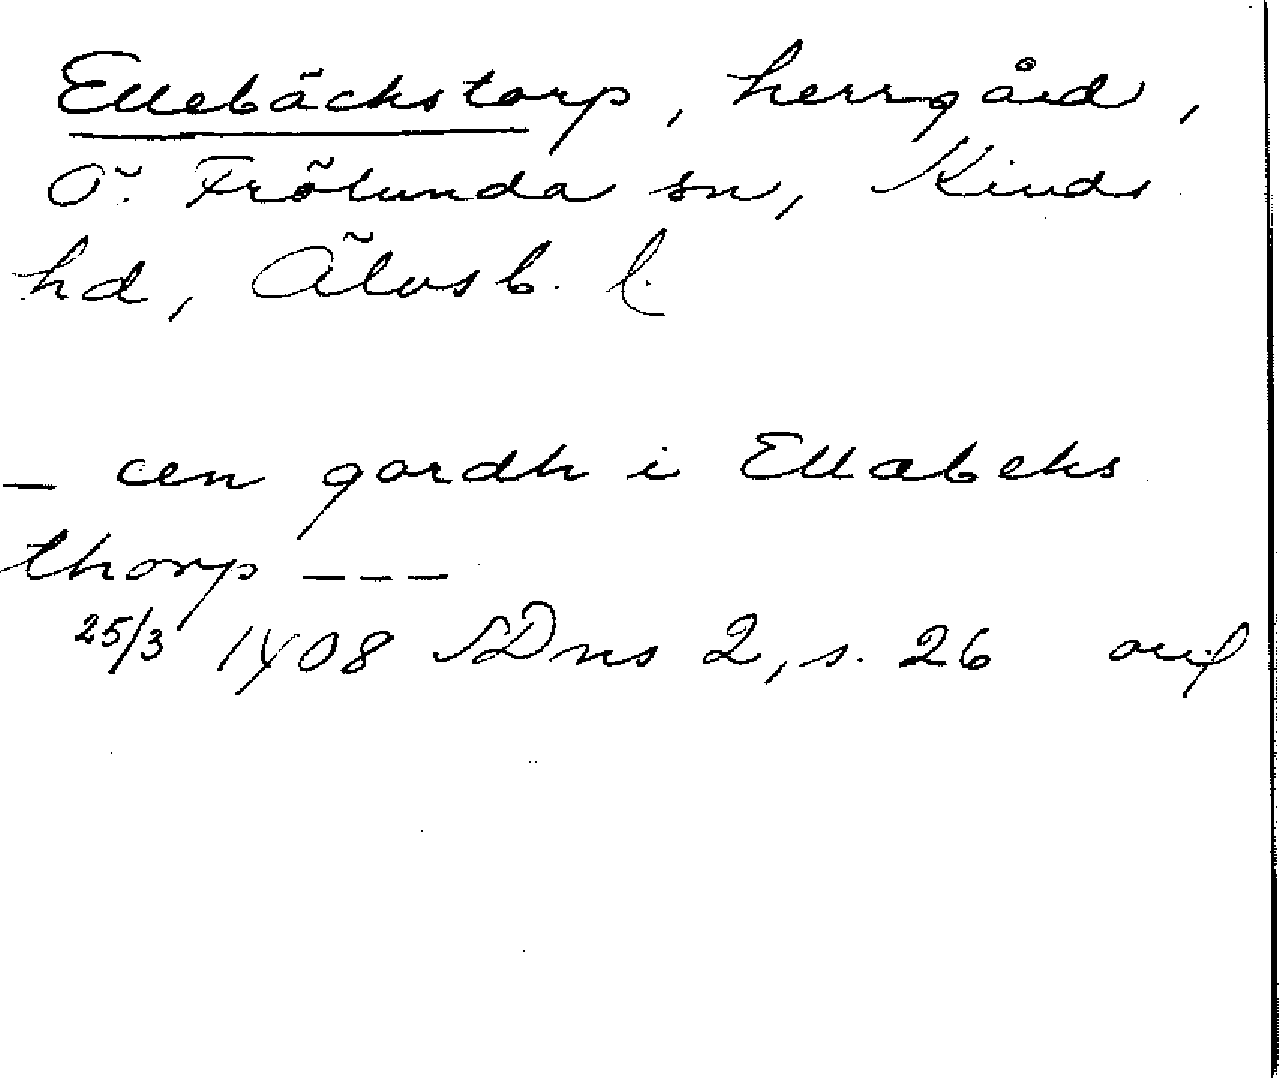 Ellebäckstorp, herrgård,
Ö. Frölunda sn, Kinds
hd, Älvsb. l.
- en gardh i Ellabeks
thorp ---
25/3 1408 SDns 2, s. 26